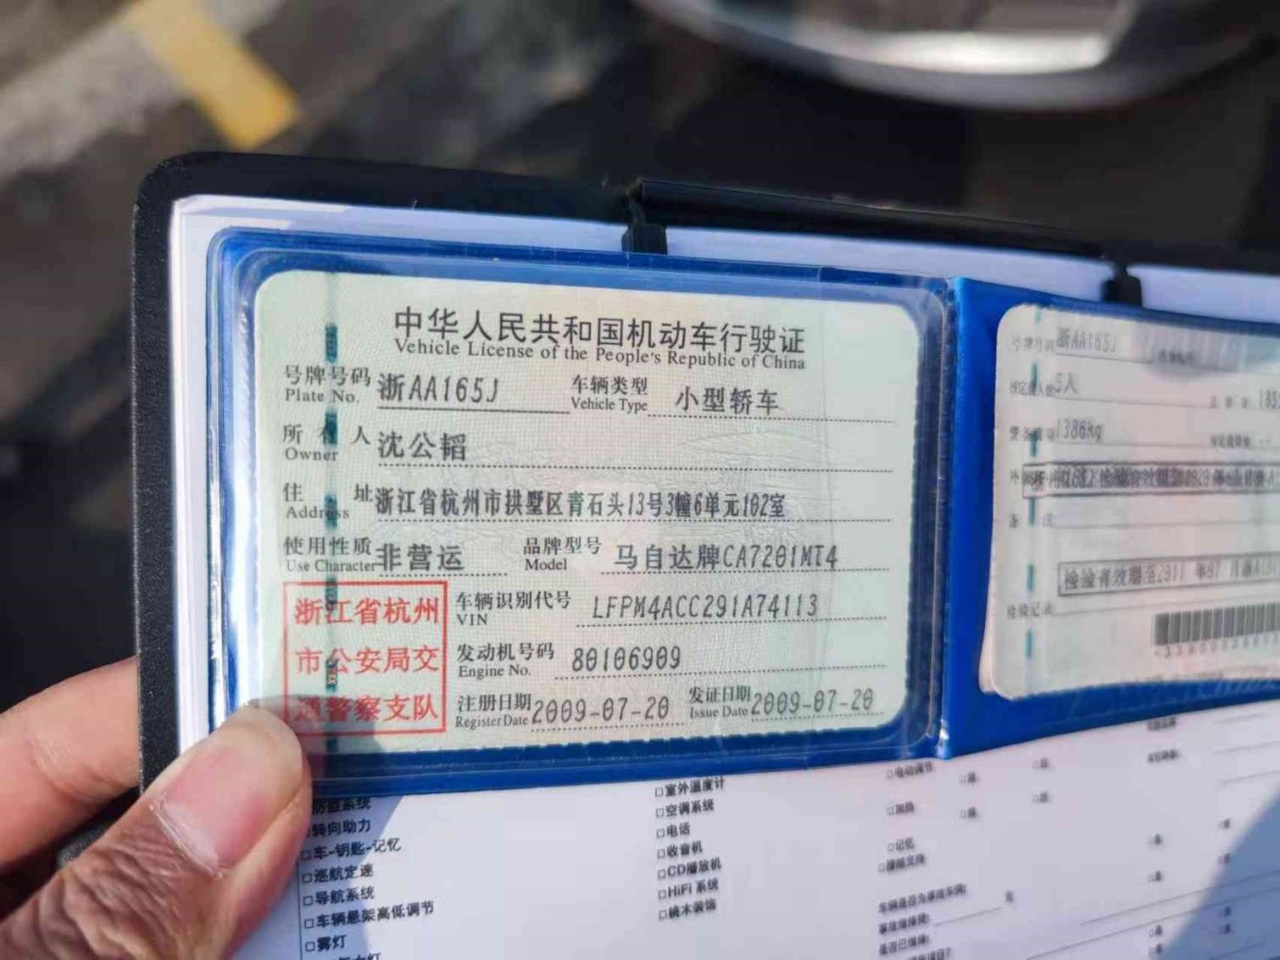 中华人民共和国机动车行驶证
Vehicle License of the People's Republic of China
号牌号码 浙AA165J 车辆类型 小型轿车
Plate No. Vehicle Type
所有人 沈公韬
Owner
住址 浙江省杭州市拱墅区青石头13号3幢6单元102室
Address
使用性质 非营运 品牌型号 马自达牌CA7201MT4
Use Character Model
浙江省杭州
市公安局交
通警察支队
车辆识别代号 LFPM4ACC291A74113
VIN
发动机号码 80106909
Engine No.
注册日期 2009-07-20 发证日期 2009-07-20
Register Date Issue Date
号牌号码 浙AA165J
5人
1386kg
检验记录
防盗系统
转向助力
□车-钥匙-记忆
□巡航定速
□导航系统
□车辆悬架高低调节
□雾灯
□室外温度计
□空调系统
□电话
□收音机
□CD播放机
□HiFi 系统
□桃木装饰
□电动调节
□记忆